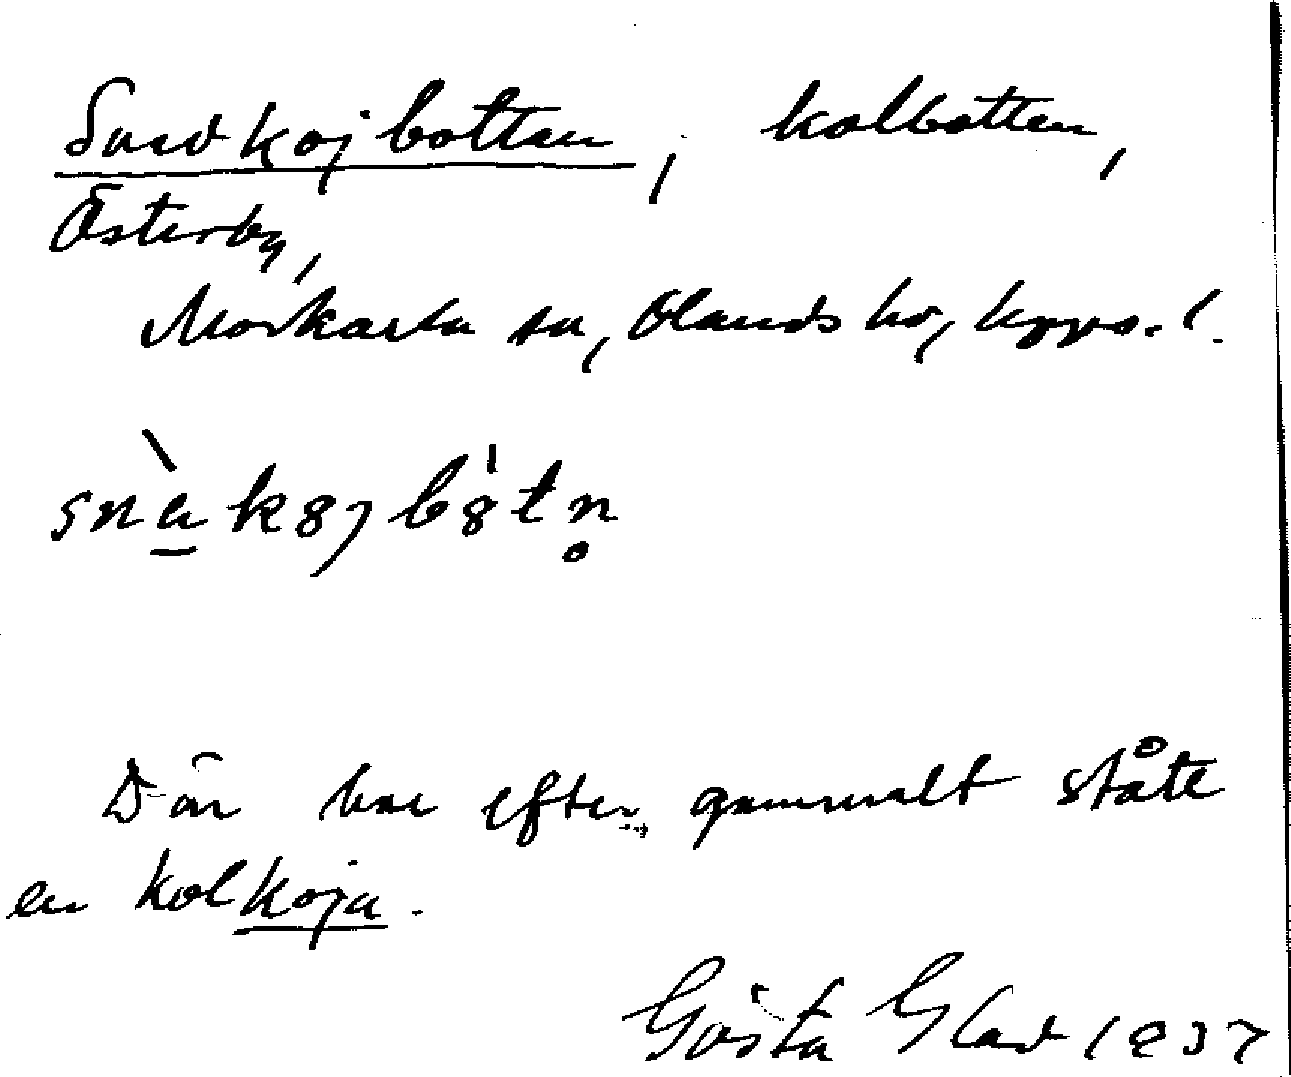 Snedkojbotten, kolbotten,
Österby,
Morkarla sn, Olands hd, Upps. l.
där har efter gammalt stått
en kolkoja.
Gösta Glad 1937